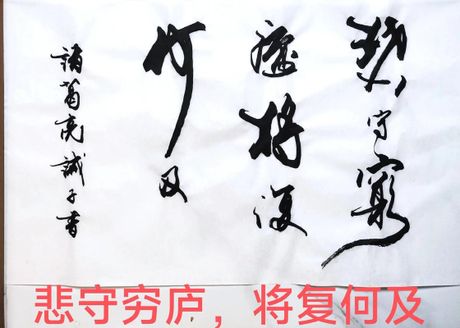 悲守窮
廬將復
何及
諸葛亮誡子書
悲守穷庐，将复何及